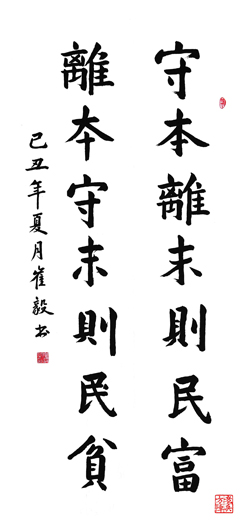 守本離末則民富
離本守末則民貧
己丑年夏月崔毅书